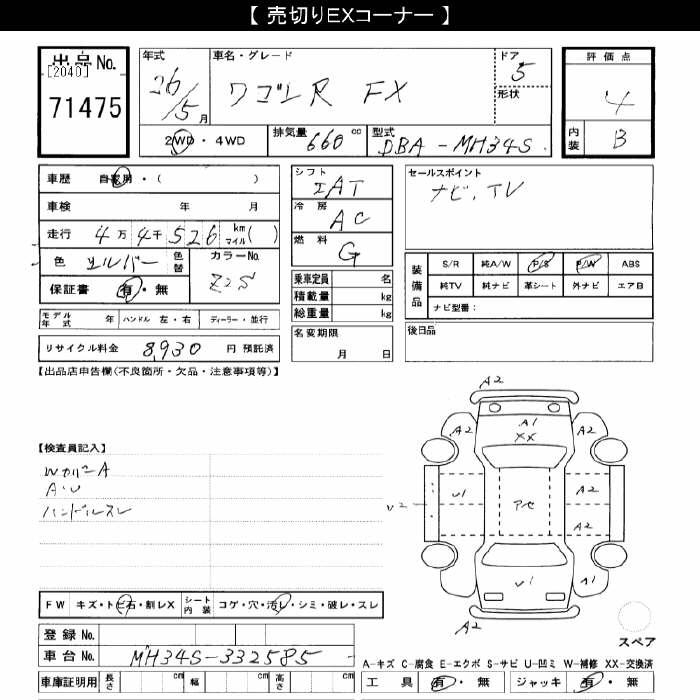 【 売切りEXコーナー 】
出品No.
[2040]
71475
年式
26/5月
車名・グレード
ワゴンR FX
ドア
5
形状
評価点
4
内装
B
2WD・4WD
排気量
660cc
型式
DBA-MH34S
車歴 自家用・( )
車検 年 月
走行 4万4千526 km マイル( )
色 シルバー 色替
カラーNo.
Z2S
保証書 有・無
シフト
IAT
冷房
AC
燃料
G
セールスポイント
ナビ、TV
乗車定員 名
積載量 kg
総重量 kg
装備品
S/R 純A/W P/S P/W ABS
純TV 純ナビ 革シート 外ナビ エアB
ナビ型番：
モデル年式 年 ハンドル 左・右 ディーラー・並行
名変期限
月 日
後日品
リサイクル料金 8,930 円 預託済
【出品店申告欄(不良箇所・欠品・注意事項等)】
【検査員記入】
WカバーA
A・U
ハンドルスレ
A2
A2 A1 A2
XX
U2 U1 アセ A2
A2
A2 U1 A1
A2
スペア
FW キズ・トビ石・割レX シート内装 コゲ・穴・汚レ・シミ・破レ・スレ
登録No.
車台No. MH34S-332585
A-キズ C-腐食 E-エクボ S-サビ U-凹ミ W-補修 XX-交換済
車庫証明用 長さ cm 幅 cm 高さ cm
工具 有・無 ジャッキ 有・無